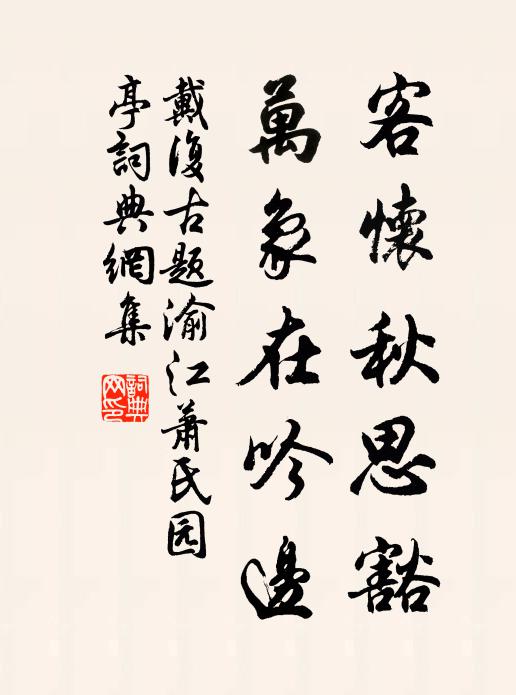 客懷秋思豁
萬象在吟邊
戴復古题渝江萧氏园
亭詞典網集
詞典
网印